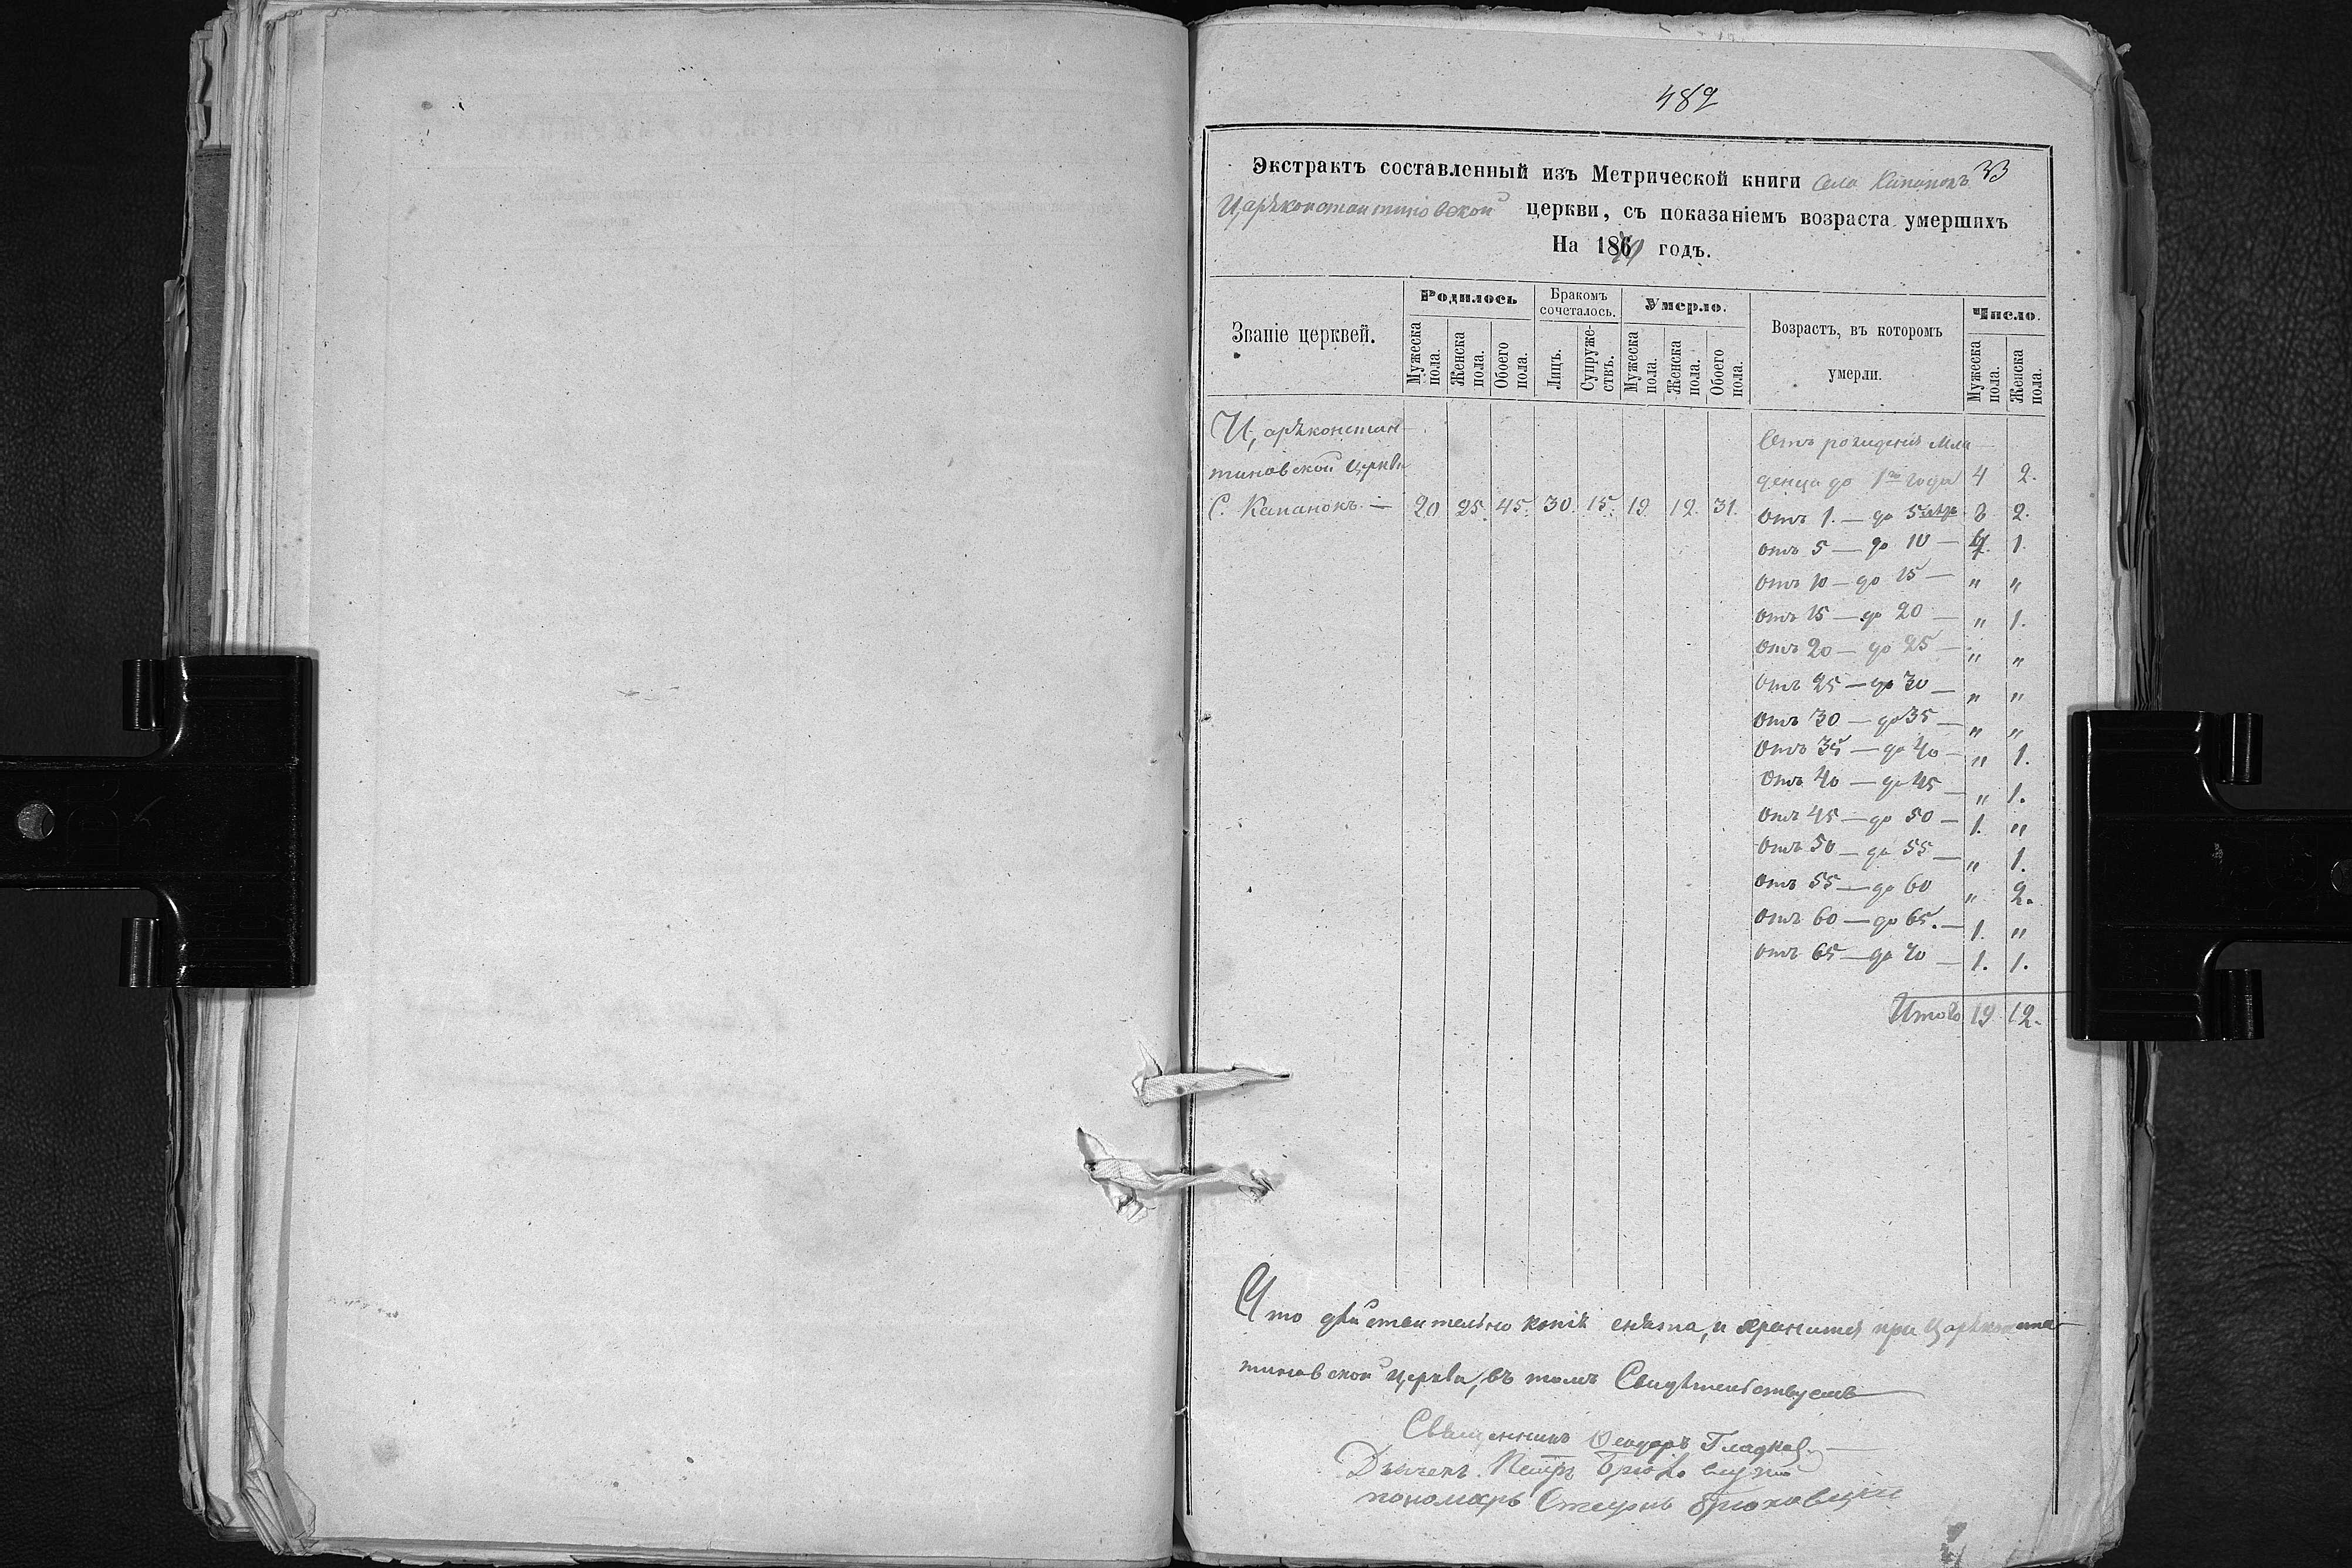 489
33
Экстрактъ составленный изъ Метрической книги Села Капанокъ
Царѣконстантиновской церкви, съ показаніемъ возраста умершихъ
На 1870 годъ.
Званіе церквей. Родилось Бракомъ сочеталось. Умерло. Возрастъ, въ которомъ умерли. Число.
Мужеска пола. Женска пола. Обоего пола. Лицъ. Супружествъ. Мужеска пола. Женска пола. Обоего пола. Мужеска пола. Женска пола.
Царѣконстан-
тиновской церкви
С. Капанокъ — 20 25. 45. 30. 15. 19 12. 31.
Отъ рожденія мла-
денца до 1го года 4 2.
Отъ 1. — до 5 лѣтъ 8 2.
Отъ 5 — до 10 — 4. 1.
Отъ 10 — до 15 — " "
Отъ 15 — до 20 — " 1.
Отъ 20 — до 25 — " "
Отъ 25 — до 30 — " "
Отъ 30 — до 35 — " "
Отъ 35 — до 40 — " 1.
Отъ 40 — до 45 — " 1.
Отъ 45 — до 50 — 1. "
Отъ 50 — до 55 — " 1.
Отъ 55 — до 60 " 2.
Отъ 60 — до 65. — 1. "
Отъ 65 — до 70 — 1. 1.
Итого 19 12.
Что дѣйствительно копія снята, и хранится при Царѣконстан-
тиновской церкви, въ томъ Свидѣтельствуемъ
Священникъ Ѳеодоръ Гладков
Дьячекъ Петръ
пономарь Стефанъ Брюховецкій